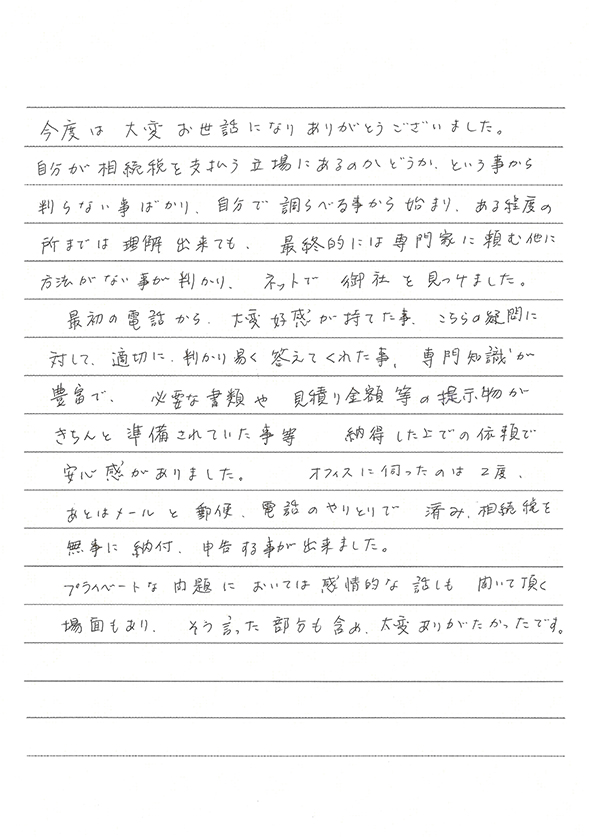 今度は 大変 お世話になり ありがとうございました。
自分が 相続税を 支払う 立場にあるのかどうか、という事から
判らない事ばかり、自分で 調らべる事から 始まり、ある程度の
所までは 理解 出来ても、 最終的には 専門家に 頼む他に
方法がない事が 判かり、 ネットで 御社 を 見つけました。
最初の 電話から、大変 好感が 持てた事、こちらの疑問に
対して、適切に、判かり易く 答えてくれた事、専門知識が
豊富で、 必要な書類や 見積り金額 等の提示物が
きちんと 準備されていた 事等 納得した上での依頼で
安心感がありました。 オフィスに伺ったのは 2度、
あとはメールと 郵便、電話のやりとりで 済み、相続税を
無事に 納付、申告する事が出来ました。
プライベートな 内題に おいては 感情的な 話しも 聞いて頂く
場面もあり、 そう言った 部分も含め、大変ありがたかったです。